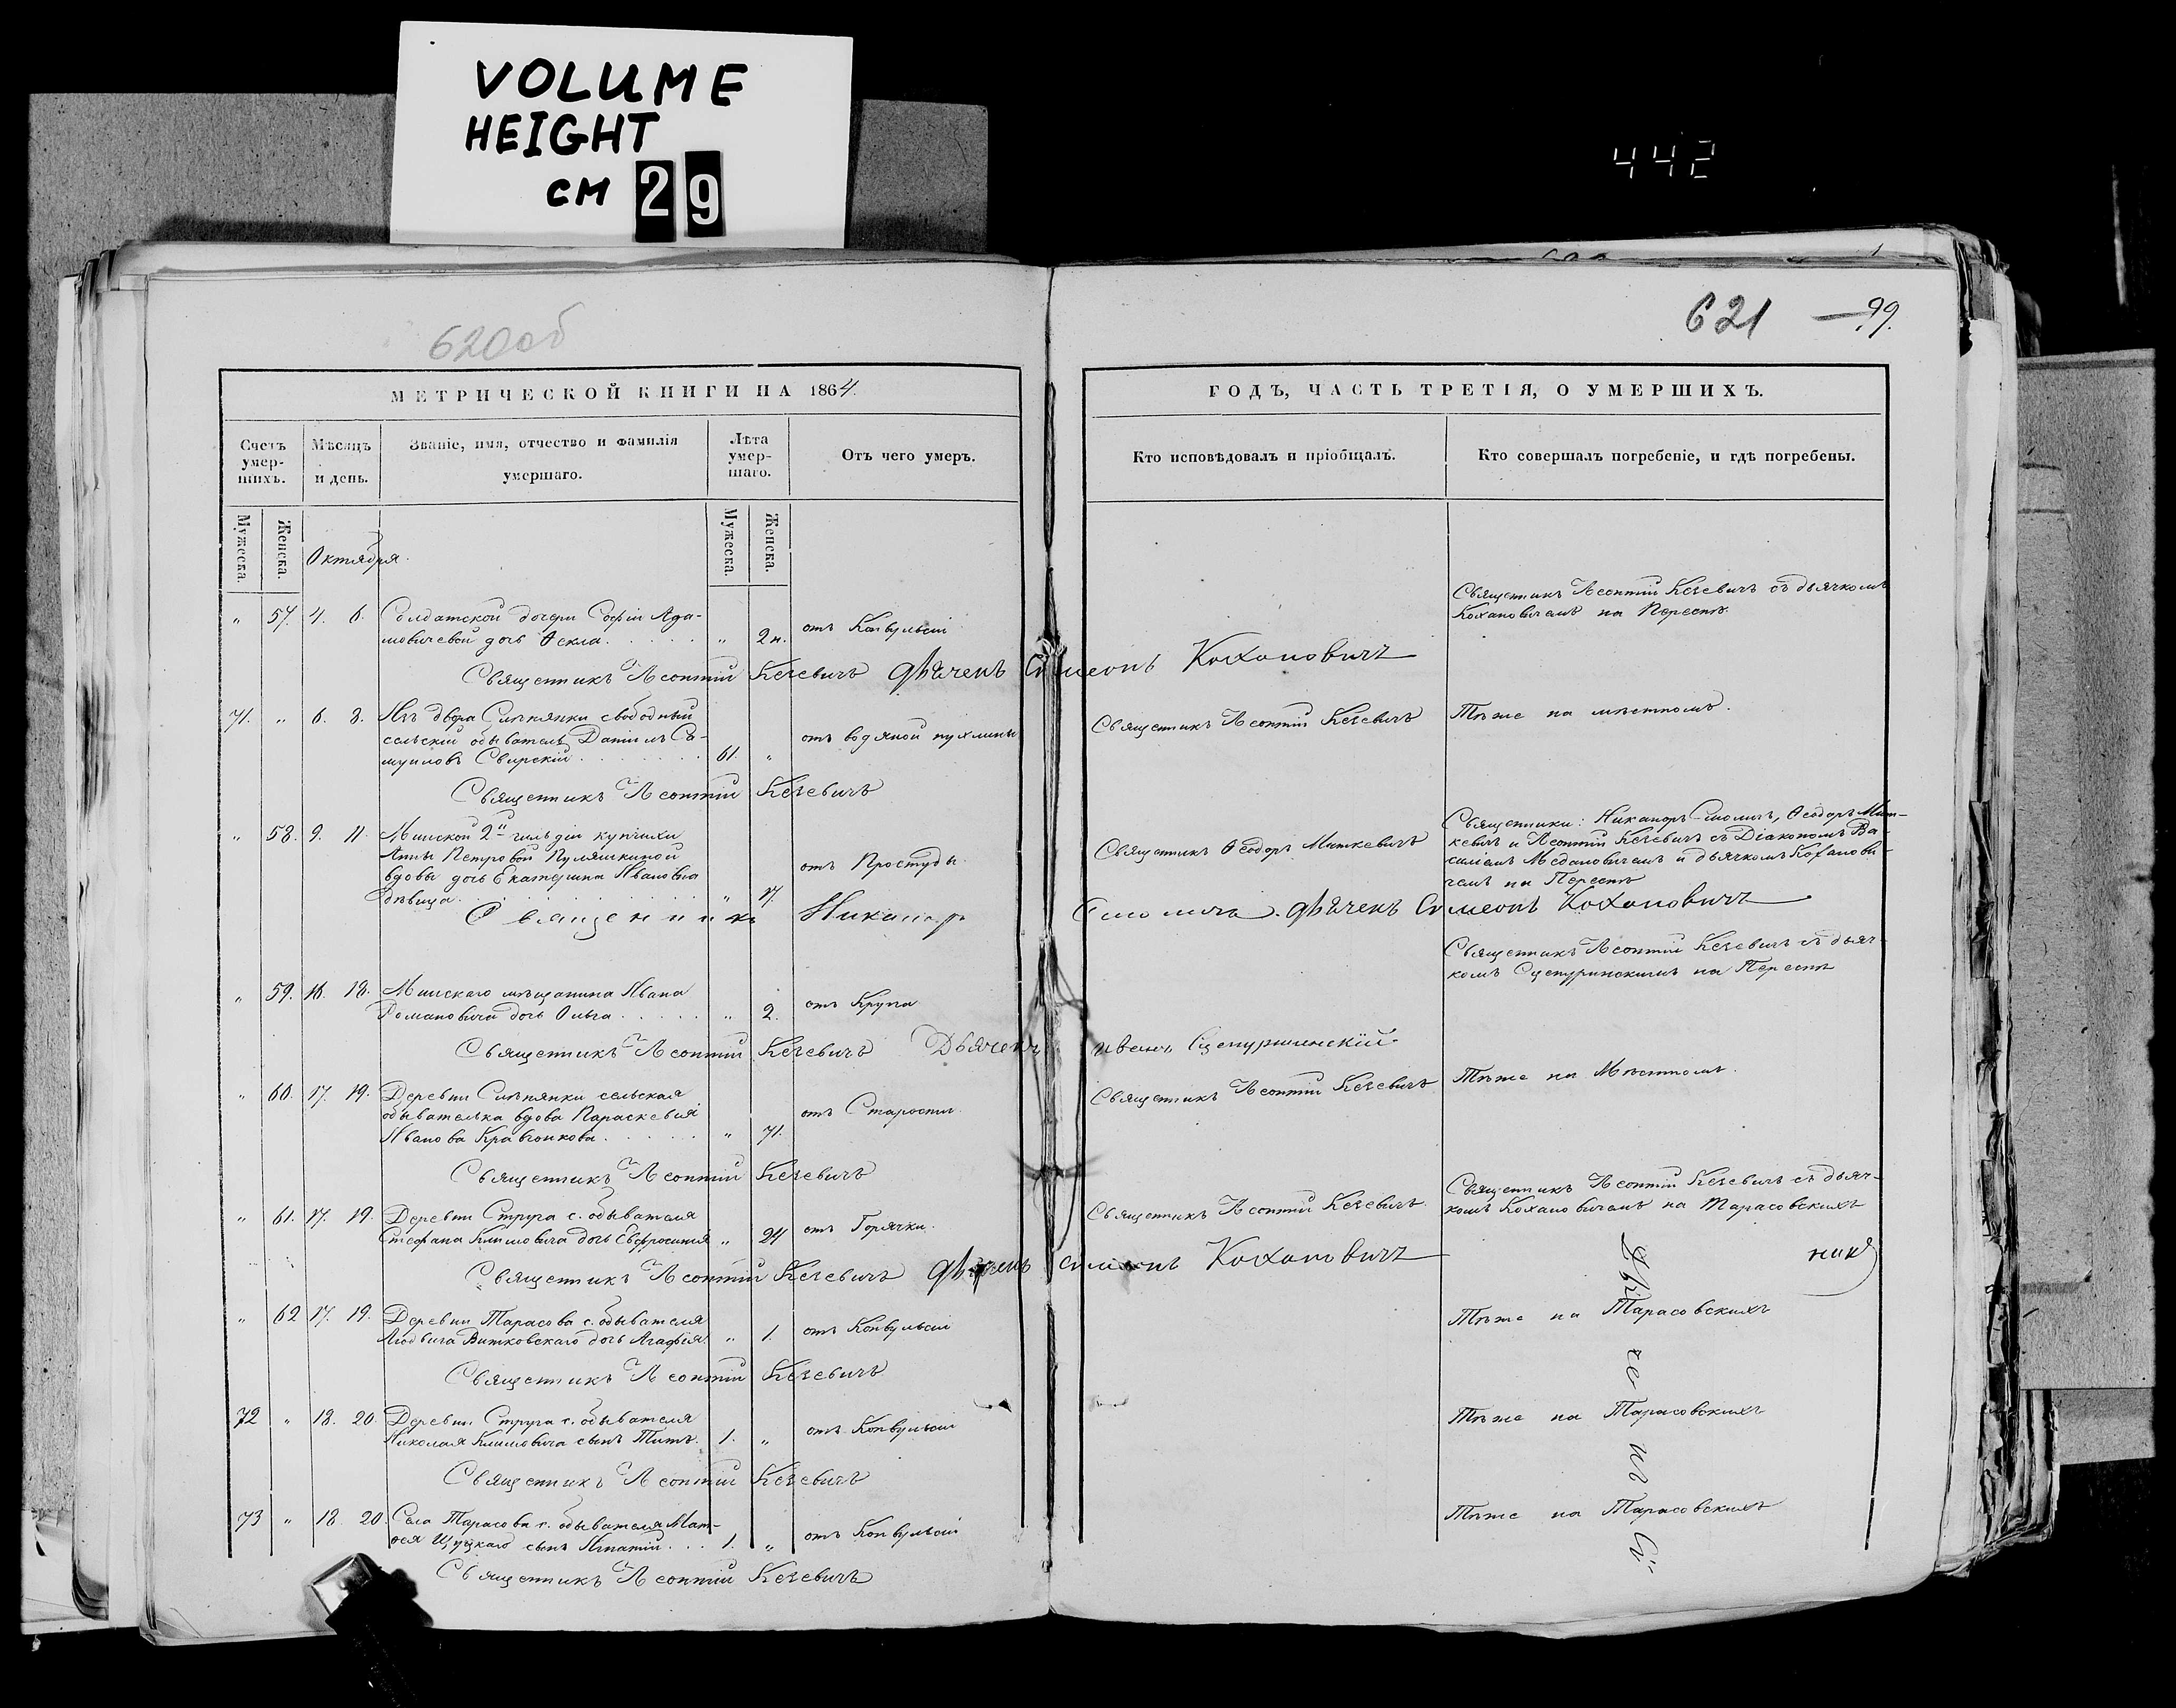 VOLUME
HEIGHT
CM 29
442
620об
621 — 99.
МЕТРИЧЕСКОЙ КНИГИ НА 1864.
ГОДЪ, ЧАСТЬ ТРЕТІЯ, О УМЕРШИХЪ.
Счетъ умер-шихъ.
Мѣсяцъ и день.
Званіе, имя, отчество и фамилія умершаго.
Лѣта умер-шаго.
Отъ чего умеръ.
Кто исповѣдовалъ и пріобщалъ.
Кто совершалъ погребеніе, и гдѣ погребены.
Мужеска.
Женска.
Мужеска.
Женска.
Октября.
" 57. 4. 6. Солдатской дочери Софіи Ада-
мовичевой дочь Ѳекла. " 2 н. отъ Конвульсій
Священникъ Леонтій Кечевичъ съ дьячкомъ
Кохановичемъ на Переспѣ
Священникъ Леонтій Кечевичъ дьячекъ Симеонъ Кохановичъ
71. " 6. 8. Изъ двора Слѣпянки свободный
сельскій обыватель Даніилъ Са-
муиловъ Свирскій 61. " отъ водяной пухлины
Священникъ Леонтій Кечевичъ
Тѣже на мѣстномъ.
Священникъ Леонтій Кечевичъ
" 58. 9. 11. Минской 2й гильдіи купчихи
Анны Петровой Пуляшкиной
вдовы дочь Екатерина Ивановна
дѣвица. " 17. отъ Простуды
Священникъ Ѳеодоръ Миткевичъ
Священники: Никаноръ Смоличъ, Ѳеодоръ Мит-
кевичъ и Леонтій Кечевичъ съ Діакономъ Ва-
силіемъ и дьячкомъ Коханови-
чемъ на Переспѣ
Священникъ Никаноръ Смоличъ. дьячекъ Симеонъ Кохановичъ
" 59. 16. 18. Минскаго мѣщанина Ивана
Романовича дочь Ольга " 2. отъ Крупа
Священникъ Леонтій Кечевичъ съ дьяч-
комъ Сцепуржинскимъ на Переспѣ
Священникъ Леонтій Кечевичъ Дьячекъ Иванъ Сцепуржинскій
" 60. 17. 19. Деревни Слѣпянки сельская
обывателька вдова Параскевія
Иванова Кравчонкова " 71. отъ Старости.
Священникъ Леонтій Кечевичъ
Тѣже на Мѣстномъ.
Священникъ Леонтій Кечевичъ
" 61. 17. 19. Деревни Струга с. обывателя
Стефана Климовича дочь Евфросинія " 24 отъ Горячки.
Священникъ Леонтій Кечевичъ.
Священникъ Леонтій Кечевичъ съ дьяч-
комъ Кохановичемъ на Тарасовскихъ
Священникъ Леонтій Кечевичъ дьячекъ Симеонъ Кохановичъ
" 62 17. 19. Деревни Тарасова с. обывателя
Людвига Витковскаго дочь Агафія " 1. отъ Конвульсій
Тѣже на Тарасовскихъ
Священникъ Леонтій Кечевичъ
72 " 18. 20. Деревни Струга с. обывателя
Николая Климовича сынъ Титъ. 1. " отъ Конвульсій
Тѣже на Тарасовскихъ
Священникъ Леонтій Кечевичъ
73 " 18 20. Села Тарасова с. обывателя Мат-
ѳея Щуцкаго сынъ Игнатій 1. " отъ Конвульсій
Тѣже на Тарасовскихъ
Священникъ Леонтій Кечевичъ